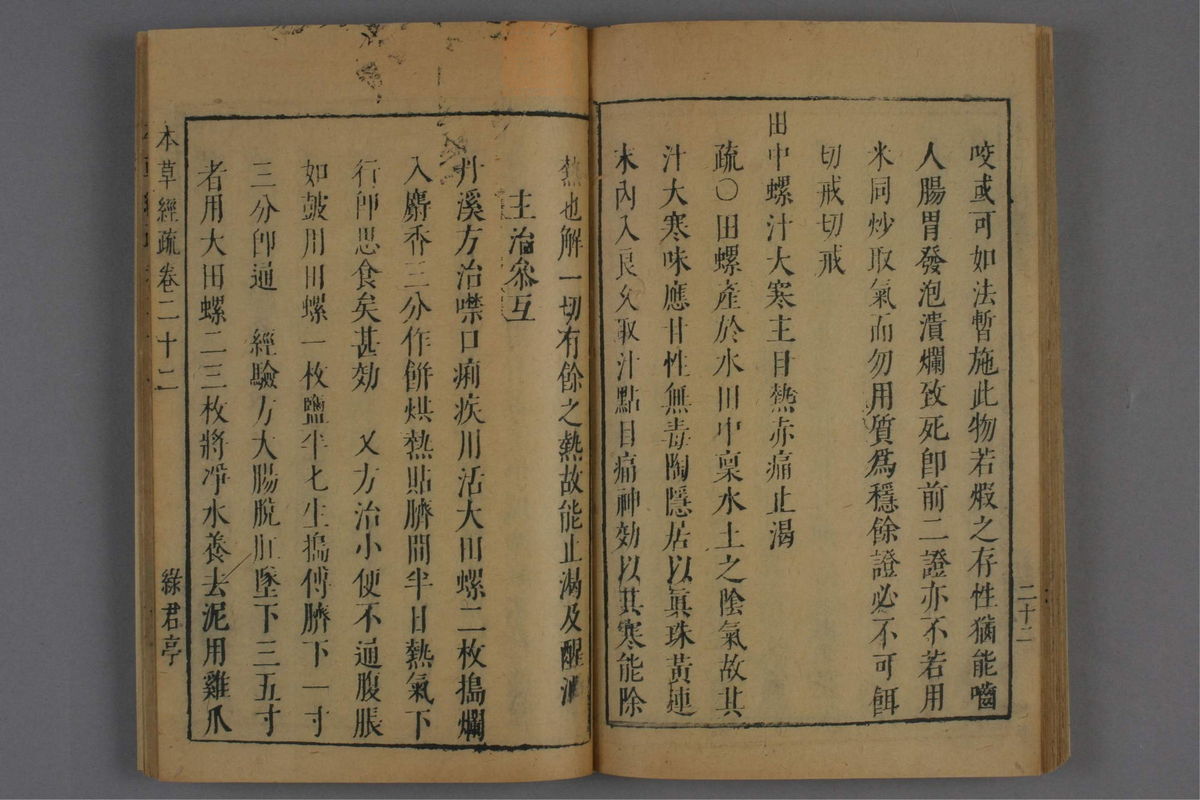 咬或可如法暫施此物若煆之存性猶能嚙
人腸胃發泡潰爛致死卽前二證亦不若用
米同炒取氣而勿用質爲穩餘證必不可餌
切戒切戒
田中螺汁大寒主目熱赤痛止渴
疏〇田螺產於水田中稟水土之陰氣故其
汁大寒味應甘性無毒陶隱居以眞珠黃連
末內入良久取汁點目痛神効以其寒能除
二十二
熱也解一切有餘之熱故能止渴及醒酒
主治叅互
丹溪方治噤口痢疾用活大田螺二枚搗爛
入麝香三分作餅烘熱貼臍間半日熱氣下
行卽思食矣甚効 又方治小便不通腹脹
如皷用田螺一枚鹽半匕生搗傅臍下一寸
三分卽通 經驗方大腸脫肛墜下三五寸
者用大田螺二三枚將凈水養去泥用雞爪
本草經疏卷二十二
綠君亭